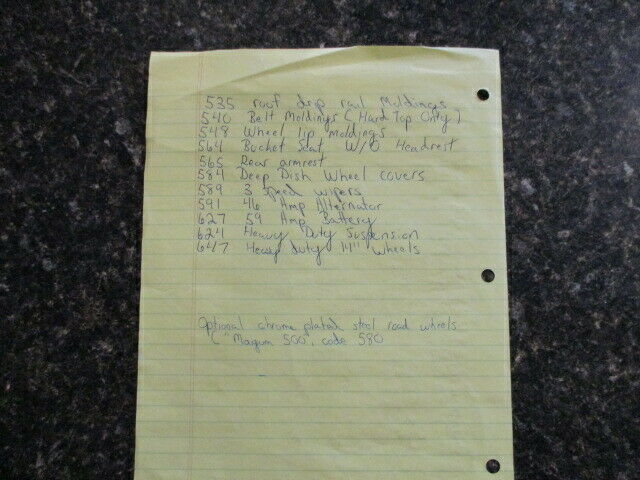 535 roof drip rail Moldings
540 Belt Moldings ( Hard Top Only )
548 Wheel lip moldings
564 Bucket seat W/O Headrest
565 Rear armrest
584 Deep Dish Wheel covers
589 3 speed wipers
591 46 Amp Alternator
627 59 Amp Battery
624 Heavy Duty Suspension
647 Heavy duty 14" wheels
Optional chrome platade steel road wheels
( "Magum 500", code 580